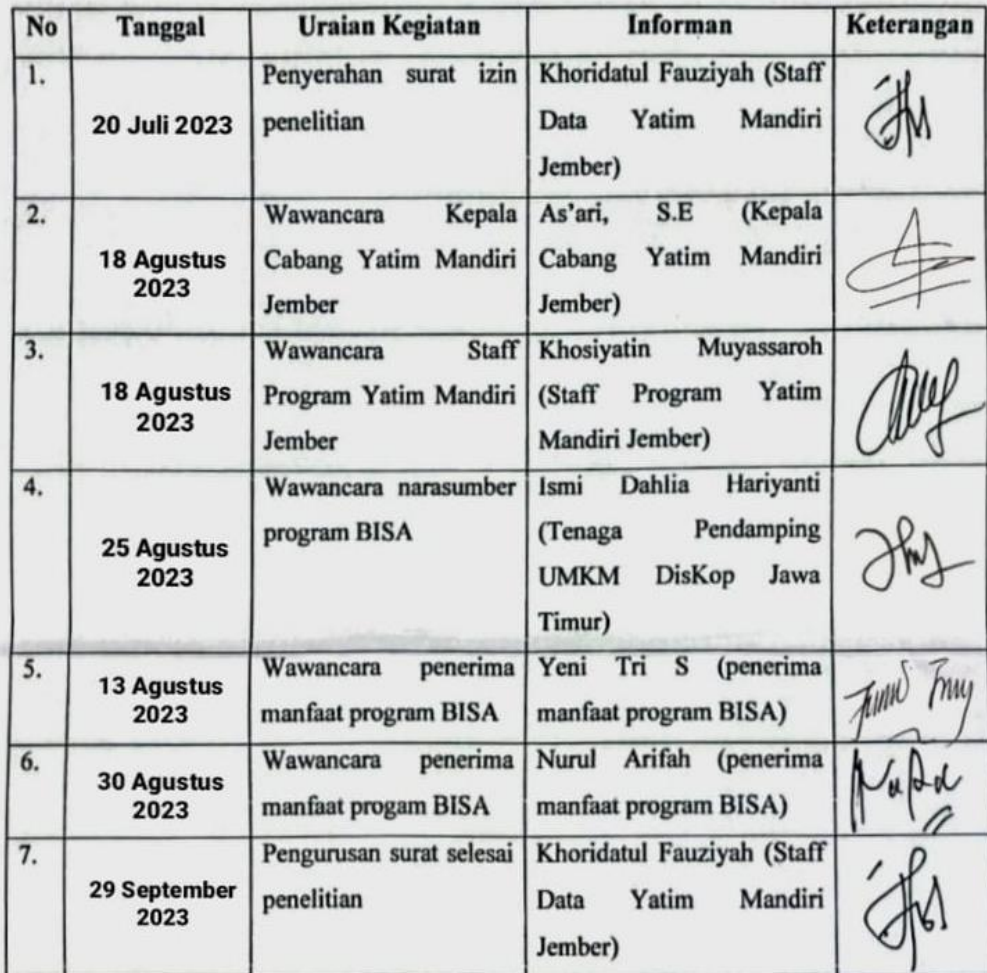 No Tanggal Uraian Kegiatan Informan Keterangan
1. 20 Juli 2023
Penyerahan surat izin
penelitian
Khoridatul Fauziyah (Staff
Data Yatim Mandiri
Jember)
2. 18 Agustus
2023
Wawancara Kepala
Cabang Yatim Mandiri
Jember
As'ari, S.E (Kepala
Cabang Yatim Mandiri
Jember)
3. 18 Agustus
2023
Wawancara Staff
Program Yatim Mandiri
Jember
Khosiyatin Muyassaroh
(Staff Program Yatim
Mandiri Jember)
4. 25 Agustus
2023
Wawancara narasumber
program BISA
Ismi Dahlia Hariyanti
(Tenaga Pendamping
UMKM DisKop Jawa
Timur)
5. 13 Agustus
2023
Wawancara penerima
manfaat program BISA
Yeni Tri S (penerima
manfaat program BISA)
6. 30 Agustus
2023
Wawancara penerima
manfaat progam BISA
Nurul Arifah (penerima
manfaat program BISA)
7. 29 September
2023
Pengurusan surat selesai
penelitian
Khoridatul Fauziyah (Staff
Data Yatim Mandiri
Jember)